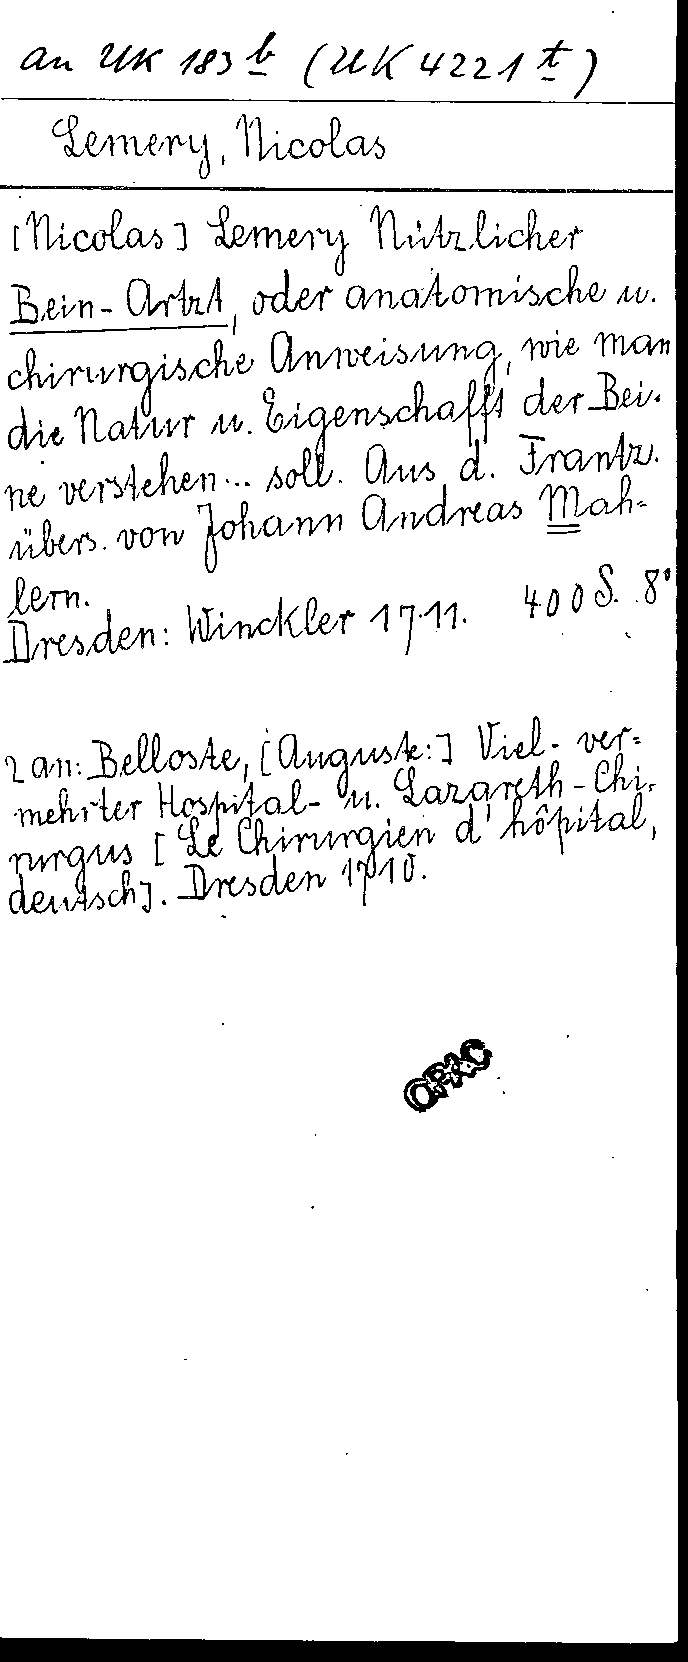 an UK 183 b (UK 4221 t)
Lemery, Nicolas
[Nicolas] Lemery Nützlicher
Bein-Artzt, oder anatomische u.
chirurgische Anweisung, wie man
die Natur u. Eigenschafft der Bei-
ne verstehen... soll. Aus d. Frantz.
übers. von Johann Andreas Mah-
lern.
Dresden: Winckler 1711. 400 S. 8°
2 an: Belloste, [Auguste:] Viel- ver-
mehrter Hospital- u. Lazareth-Chi-
rurgus [Le Chirurgien d'hôpital,
deutsch]. Dresden 1710.
OPAC